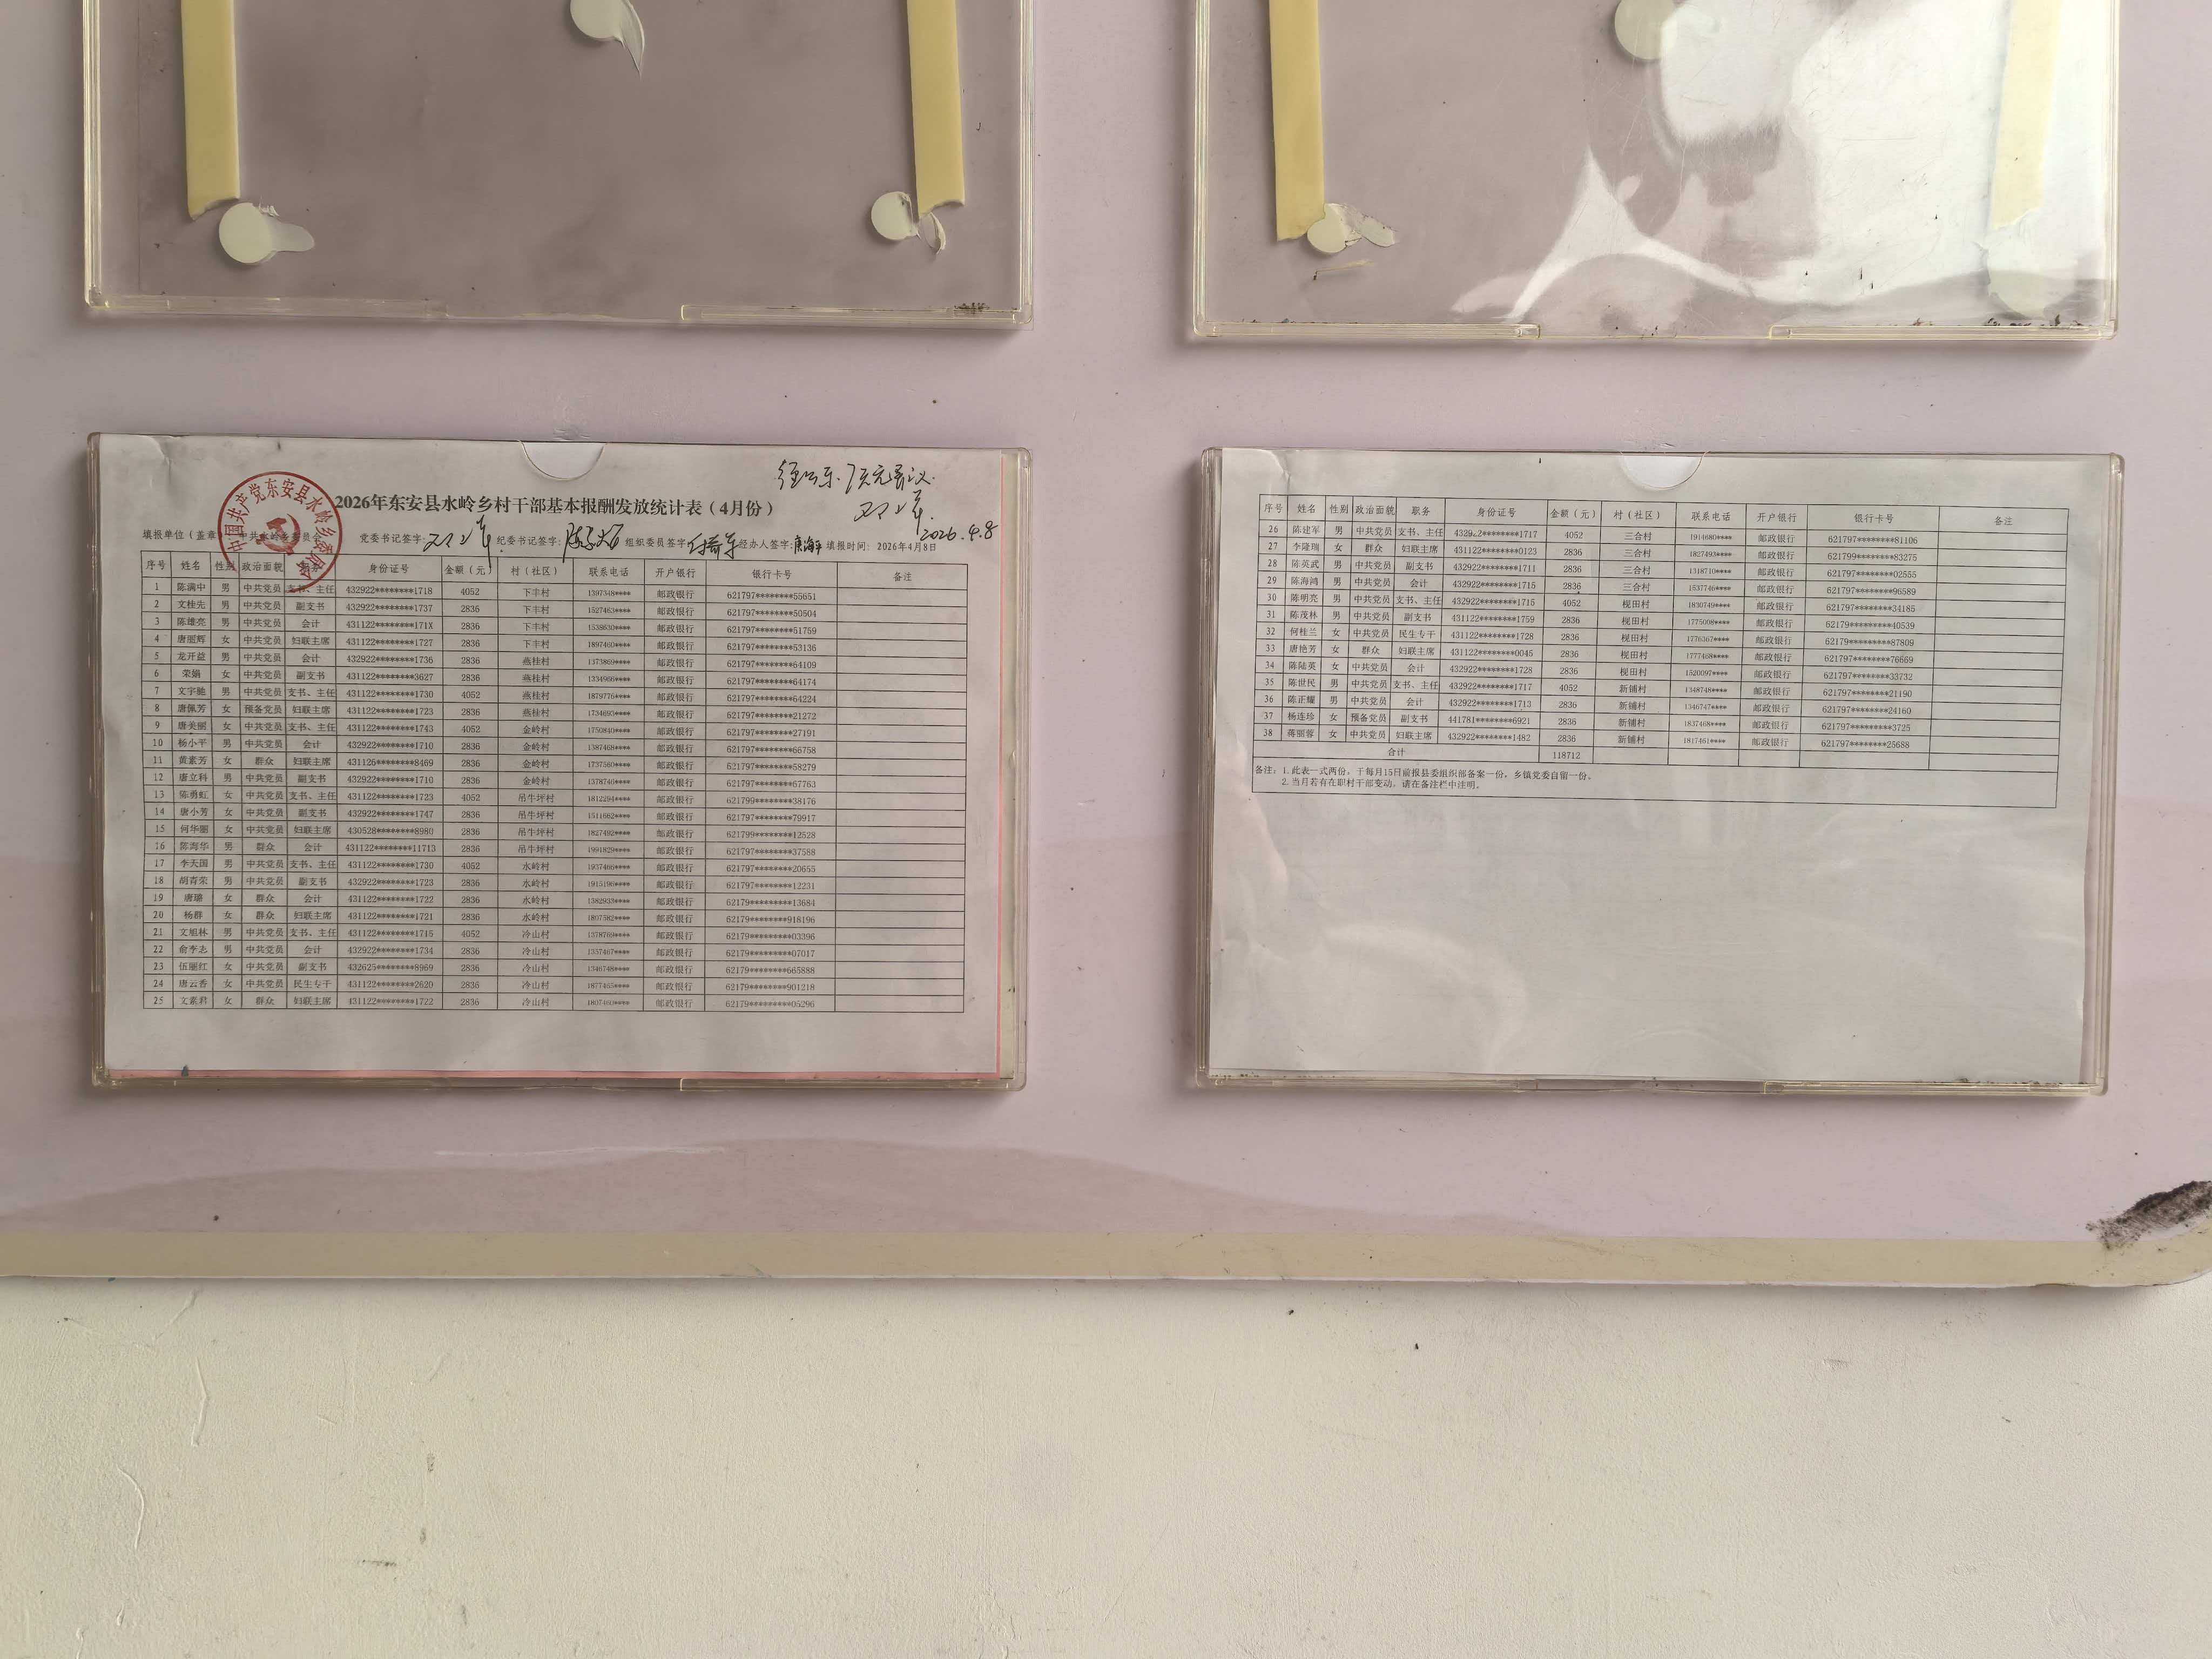 2026年东安县水岭乡村干部基本报酬发放统计表（4月份）
中国共产党东安县水岭乡委员会
填报单位（盖章） 中共水岭乡委员会 党委书记签字: 纪委书记签字: 组织委员签字: 经办人签字: 填报时间: 2026年4月8日
2026.4.8
序号 姓名 性别 政治面貌 职务 身份证号 金额（元） 村（社区） 联系电话 开户银行 银行卡号 备注
1 陈满中 男 中共党员 支书、主任 432922********1718 4052 下丰村 1397348**** 邮政银行 621797********55651
2 文桂先 男 中共党员 副支书 432922********1737 2836 下丰村 1527463**** 邮政银行 621797********50504
3 陈雄亮 男 中共党员 会计 431122********171X 2836 下丰村 1539630**** 邮政银行 621797********51759
4 唐丽辉 女 中共党员 妇联主席 431122********1727 2836 下丰村 1897460**** 邮政银行 621797********53136
5 龙开益 男 中共党员 会计 432922********1736 2836 燕桂村 1373869**** 邮政银行 621797********64109
6 荣娟 女 中共党员 副支书 431122********3627 2836 燕桂村 1334966**** 邮政银行 621797********64174
7 文宇驰 男 中共党员 支书、主任 431122********1730 4052 燕桂村 1879776**** 邮政银行 621797********64224
8 唐佩芳 女 预备党员 妇联主席 431122********1723 2836 燕桂村 1734693**** 邮政银行 621797********21272
9 唐美丽 女 中共党员 支书、主任 431122********1743 4052 金岭村 1750840**** 邮政银行 621797********27191
10 杨小平 男 中共党员 会计 432922********1710 2836 金岭村 1387468**** 邮政银行 621797********66758
11 黄素芳 女 群众 妇联主席 431126********8469 2836 金岭村 1737560**** 邮政银行 621797********58279
12 唐立科 男 中共党员 副支书 432922********1710 2836 金岭村 1378746**** 邮政银行 621797********67763
13 陈勇虹 女 中共党员 支书、主任 431122********1723 4052 吊牛坪村 1812294**** 邮政银行 621799********38176
14 唐小芳 女 中共党员 副支书 432922********1747 2836 吊牛坪村 1511662**** 邮政银行 621797********79917
15 何华丽 女 中共党员 妇联主席 430528********8980 2836 吊牛坪村 1827492**** 邮政银行 621799********12528
16 陈海华 男 群众 会计 431122********11713 2836 吊牛坪村 1991829**** 邮政银行 621797********37588
17 李天国 男 中共党员 支书、主任 431122********1730 4052 水岭村 1937466**** 邮政银行 621797********20655
18 胡青荣 男 中共党员 副支书 432922********1723 2836 水岭村 1915196**** 邮政银行 621797********12231
19 唐璐 女 群众 会计 431122********1722 2836 水岭村 1382933**** 邮政银行 62179*********13684
20 杨群 女 群众 妇联主席 431122********1721 2836 水岭村 1897582**** 邮政银行 62179********918196
21 文旭林 男 中共党员 支书、主任 431122********1715 4052 冷山村 1378769**** 邮政银行 62179*********03396
22 俞孝志 男 中共党员 会计 432922********1734 2836 冷山村 1337467**** 邮政银行 62179*********07017
23 伍丽红 女 中共党员 副支书 432625********8969 2836 冷山村 1346748**** 邮政银行 62179********665888
24 唐云香 女 中共党员 民生专干 431122********2620 2836 冷山村 1877465**** 邮政银行 62179********901218
25 文素君 女 群众 妇联主席 431122********1722 2836 冷山村 1807460**** 邮政银行 62179*********05296
序号 姓名 性别 政治面貌 职务 身份证号 金额（元） 村（社区） 联系电话 开户银行 银行卡号 备注
26 陈建军 男 中共党员 支书、主任 432922********1717 4052 三合村 1914680**** 邮政银行 621797********81106
27 李隆瑚 女 群众 妇联主席 431122********0123 2836 三合村 1827493**** 邮政银行 621799********83275
28 陈英武 男 中共党员 副支书 432922********1711 2836 三合村 1318710**** 邮政银行 621797********02555
29 陈海鸿 男 中共党员 会计 432922********1715 2836 三合村 1537746**** 邮政银行 621797********96589
30 陈明亮 男 中共党员 支书、主任 432922********1715 4052 枧田村 1830749**** 邮政银行 621797********34185
31 陈茂林 男 中共党员 副支书 431122********1759 2836 枧田村 1775008**** 邮政银行 62179*********40539
32 何桂兰 女 中共党员 民生专干 431122********1728 2836 枧田村 1776367**** 邮政银行 62179*********87809
33 唐艳芳 女 群众 妇联主席 431122********0045 2836 枧田村 1777468**** 邮政银行 621797********76669
34 陈陆英 女 中共党员 会计 432922********1728 2836 枧田村 1520097**** 邮政银行 621797********33732
35 陈世民 男 中共党员 支书、主任 432922********1717 4052 新铺村 1348748**** 邮政银行 621797********21190
36 陈正耀 男 中共党员 会计 432922********1713 2836 新铺村 1346747**** 邮政银行 621797********24160
37 杨连珍 女 预备党员 副支书 441781********6921 2836 新铺村 1837468**** 邮政银行 621797********3725
38 蒋丽蓉 女 中共党员 妇联主席 432922********1482 2836 新铺村 1817461**** 邮政银行 621797********25688
合计 118712
备注：1.此表一式两份，于每月15日前报县委组织部备案一份，乡镇党委自留一份。
2.当月若有在职村干部变动，请在备注栏中注明。